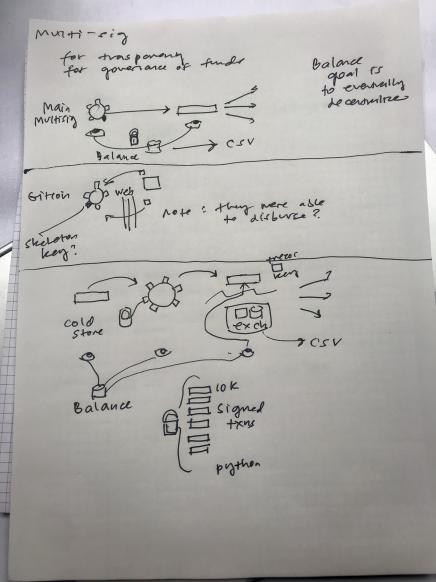 Multi-sig
for transparency
for governance of funds
Balance
goal is
to eventually
decentralize
Main
Multisig
Balance
CSV
Gitcoin
web
Note: they were able
to disburse?
Skeleton
key?
trezor
key
cold
store
exch
CSV
Balance
10K
signed
txns
python